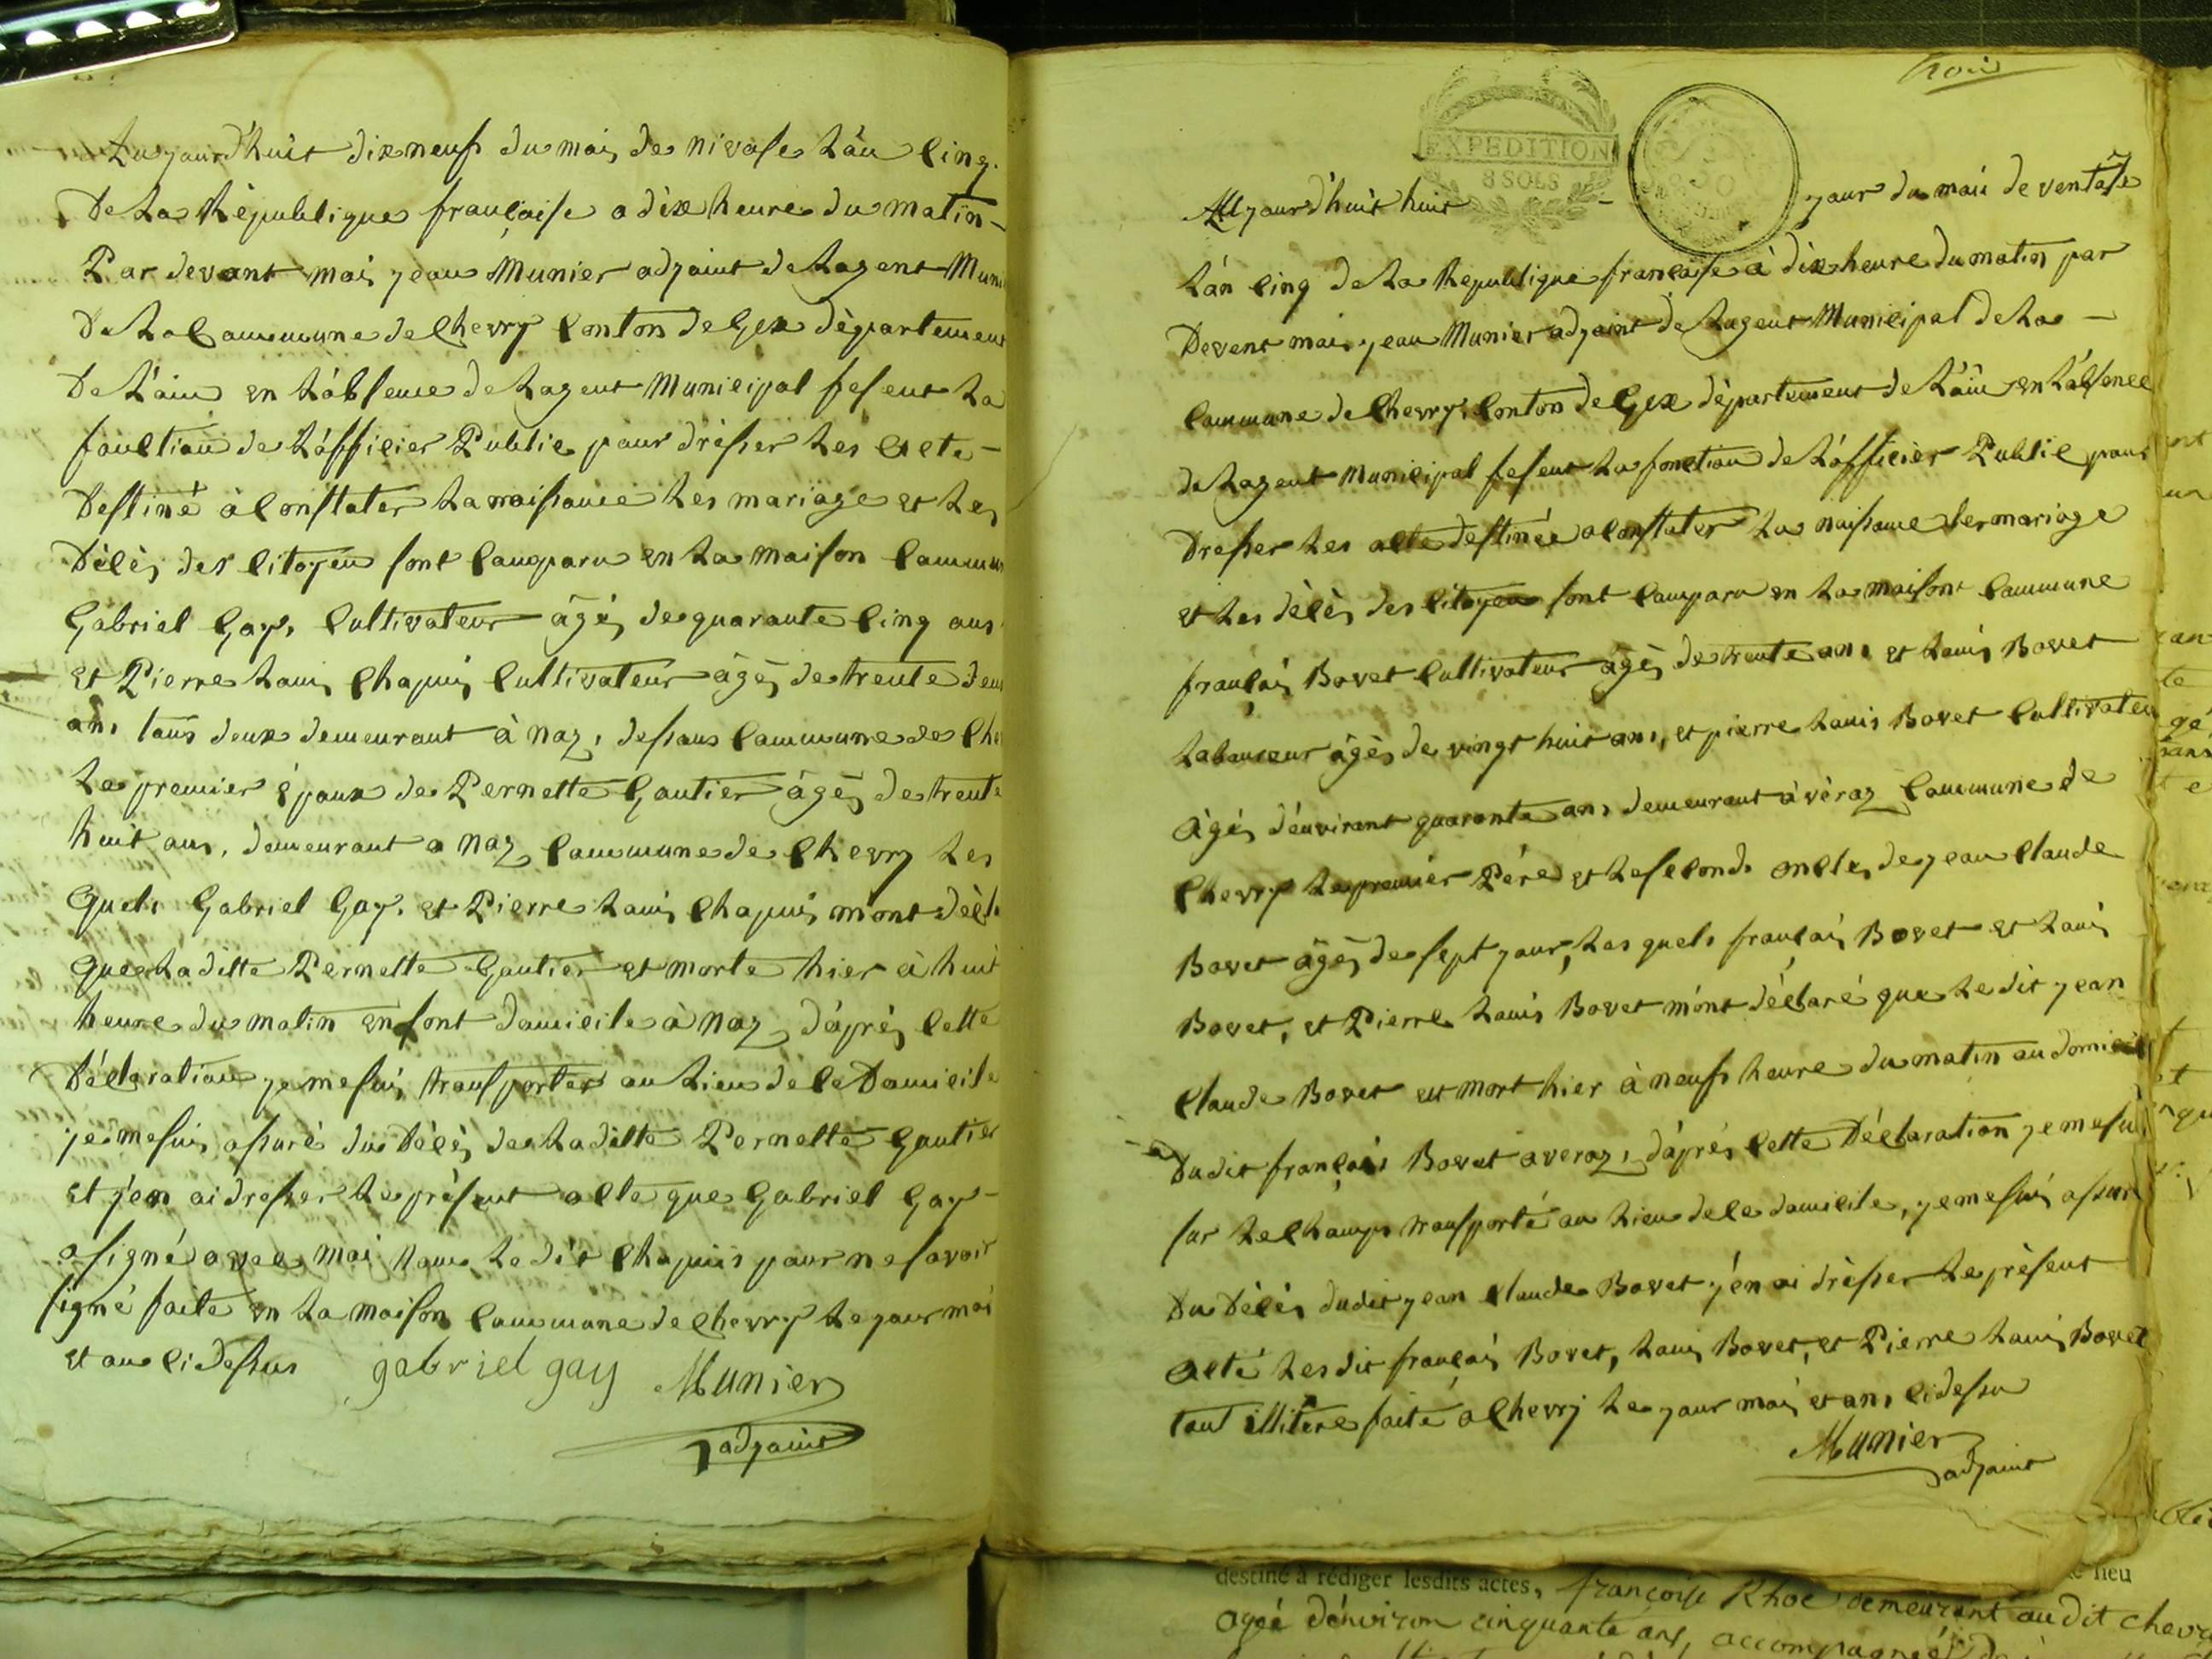 Aujourd'huit dixneuf du mois de nivose L'an Cinq.
De La République française a dix heure du matin -
Par devant moi jean Munier adjoint de Lagent Muni
De La Commune de Chevry Conton de Gex département
De L'ain en L'absence de Lagent Municipal fesent La
fonction de L'officier Public pour dresser Les Acte -
Destiné à Constater La naissance Les mariage et Les
Décès des Citoyen sont Comparu en La maison Commun
Gabriel Gay, Cultivateur âgés de quarante Cinq ans
et Pierre Louis Chapuis Cultivateur âgés de trente deux
ans tous deux demeurant à Naz, dessous Commune de Che
Le premier époux de Pernette Gautier âgés de trente
huit ans, demeurant a Naz Commune de Chevry Les
quels Gabriel Gay. et Pierre Louis Chapuis mont décla
que Laditte Pernette Gautier et morte hier à huit
heure du matin en sont domicile à Naz, d'après Cette
Déclaration je me suis transporter au Lieu de Ce Domicile
je me suis assuré du Décès de Laditte Pernette Gautier
et j'en ai dresser Le présent acte que Gabriel Gay -
a signé avec moi non Le dit Chapuis pour ne savoir
signé faite en La maison Commune de Chevry Le jour moi
et an Cidessus gabriel gay Munier
adjoint
trois
EXPEDITION
8 SOLS
Aujourd'huit huit - jour du mois de ventose
L'an Cinq de La République française à dix heure du matin par
Devent moi jean Munier adjoint de Lagent Municipal de La -
Commune de Chevry, Conton de Gex département de L'ain en L'absence
de Lagent Municipal fesent La fonction de L'officier Public pour
Dresser Les acte destinée a Constater La naissance Les mariage
et Les décès des Citoyen sont Comparu en La maison Commune
françois Bovet Cultivateur âgés de trente ans et Louis Bovet
Laboureur âgés de vingt huit ans, et pierre Louis Bovet Cultivateu
Agés d'envirent quarante ans demeurant à véraz Commune de
Chevry Le premier Père et Le second oncles de jean Claude
Bovet âgés de sept jour, Les quels françois Bovet et Louis
Bovet, et Pierre Louis Bovet m'ont déclaré que Le dit jean
Claude Bovet est mort hier à neuf heure du matin au domicile
Dudit françois Bovet a veraz, d'après Cette Déclaration je me sui
sur Le Champs transporté au Lieu de Ce domicile, je me suis assuré
Du Décès dudit jean Claude Bovet j'en ai dresser Le présent
acte Lesdit françois Bovet, Louis Bovet, et Pierre Louis Bovet
tout illitere faite a Chevry Le jour moi et ans Cidessu
Munier
adjoint
destiné à rédiger lesdits actes, françoise Rhoe demeurant au dit chevry
agée d'environ cinquante ans, accompagnée